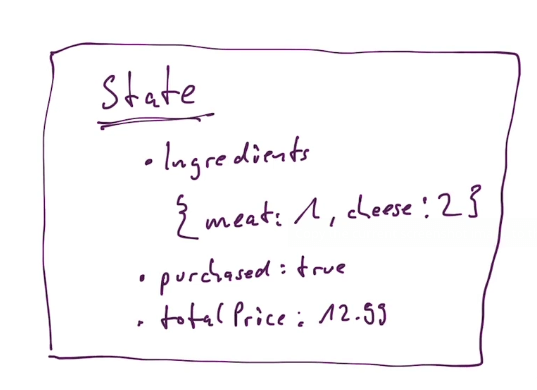 State
• Ingredients
{ meat: 1, cheese: 2 }
• purchased: true
• totalPrice: 12.99